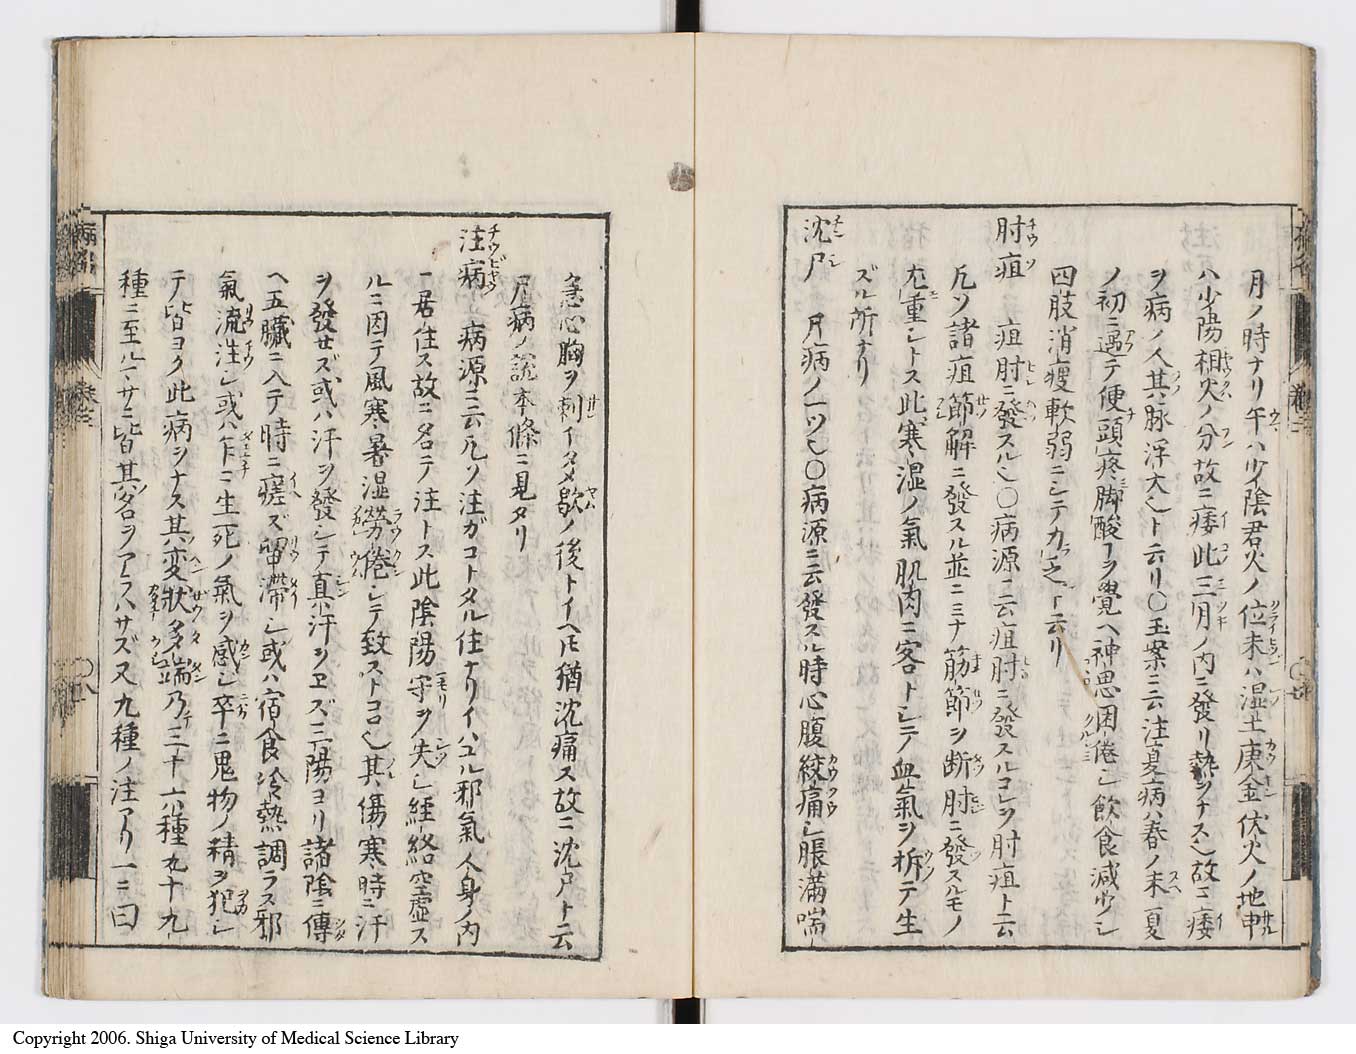 月ノ時ナリ午ハ少陰君火ノ位未ハ湿土庚金伏火ノ地申
ハ少陽相火ノ分故ニ痿此三月ノ内ニ發リ熱ヲナス故ニ痿
ヲ病ノ人其脉浮大ト云リ〇玉案ニ云注夏病ハ春ノ末夏
ノ初ニ遇テ便頭疼脚酸ヿヲ覺ヘ神思困倦シ飲食減少シ
四肢消痩軟弱ニシテ力乏ト云リ
肘疽 疽肘ニ發スル也〇病源ニ云疽肘ニ發スルコレヲ肘疽ト云
凡ソ諸疽節解ニ發スル並ニミナ筋節ヲ断肘ニ發スルモノ
尤重シトス此寒湿ノ氣肌肉ニ客トシテ血氣ヲ折テ生
ズル所ナリ
沈尸 尸病ノ一ツ也〇病源ニ云發スル時心腹絞痛シ脹満喘
急心胸ヲ刺イタメ歇ノ後トイヘ𪜈猶沈痛ス故ニ沈尸ト云
尸病ノ説本條ニ見タリ
注病 病源ニ云凡ソ注ガコトタル住ナリイハユル邪氣人身ノ内
ニ居住ス故ニ名テ注トス此陰陽守ヲ失シ經絡空虚ス
ルニ因テ風寒暑湿勞倦シテ致ストコロ也其傷寒時ニ汗
ヲ發セズ或ハ汗ヲ發シテ真汗ヲヱズ三陽ヨリ諸陰ニ傳
ヘ五臓ニ入テ時ニ瘥ズ畄滞シ或ハ宿食冷熱調ラス邪
氣流注シ或ハ乍ニ生死ノ氣ヲ感シ卒ニ鬼物ノ精ヲ犯シ
テ皆ヨク此病ヲナス其変状多端乃三十六種九十九
種ニ至ル丶サニ皆其名ヲアラハサズ又九種ノ注アリ一ニ曰
Copyright 2006. Shiga University of Medical Science Library